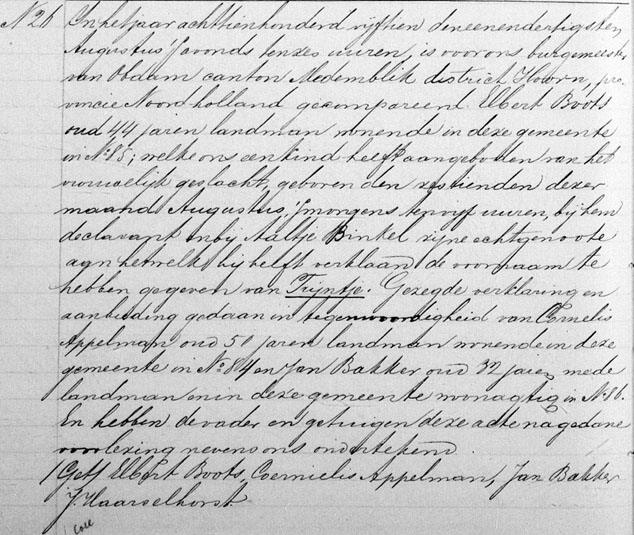 No 26 In het jaar achttienhonderd vijftien den eenendertigsten
Augustus 's avonds ten zes uuren, is voor ons burgemeester
van Obdam canton Medemblik district Hoorn, pro-
vincie Noordholland gecompareerd Elbert Boots
oud 44 jaren landman wonende in deze gemeente
in No 85; welke ons een kind heeft aangeboden van het
vrouwelijk geslacht, geboren den zestienden dezer
maand Augustus, 's morgens ten vijf uuren, bij hem
declarant en bij Aaltje Binkel zijne echtgenoote
aan hetwelk hij heeft verklaard de voornaam te
hebben gegeven van Trijntje. Gezegde verklaring en
aanbieding gedaan in tegenwoordigheid van Cornelis
Appelman oud 50 jaren landman wonende in deze
gemeente in No 84 en Jan Bakker oud 32 jaren mede
landman en in deze gemeente woonagtig in No 86.
En hebben de vader en getuigen deze acte na gedane
voorlezing nevens ons ondertekend.
(Get) Elbert Boots, Coernielis Appelman, Jan Bakker
J. Haarselhorst.